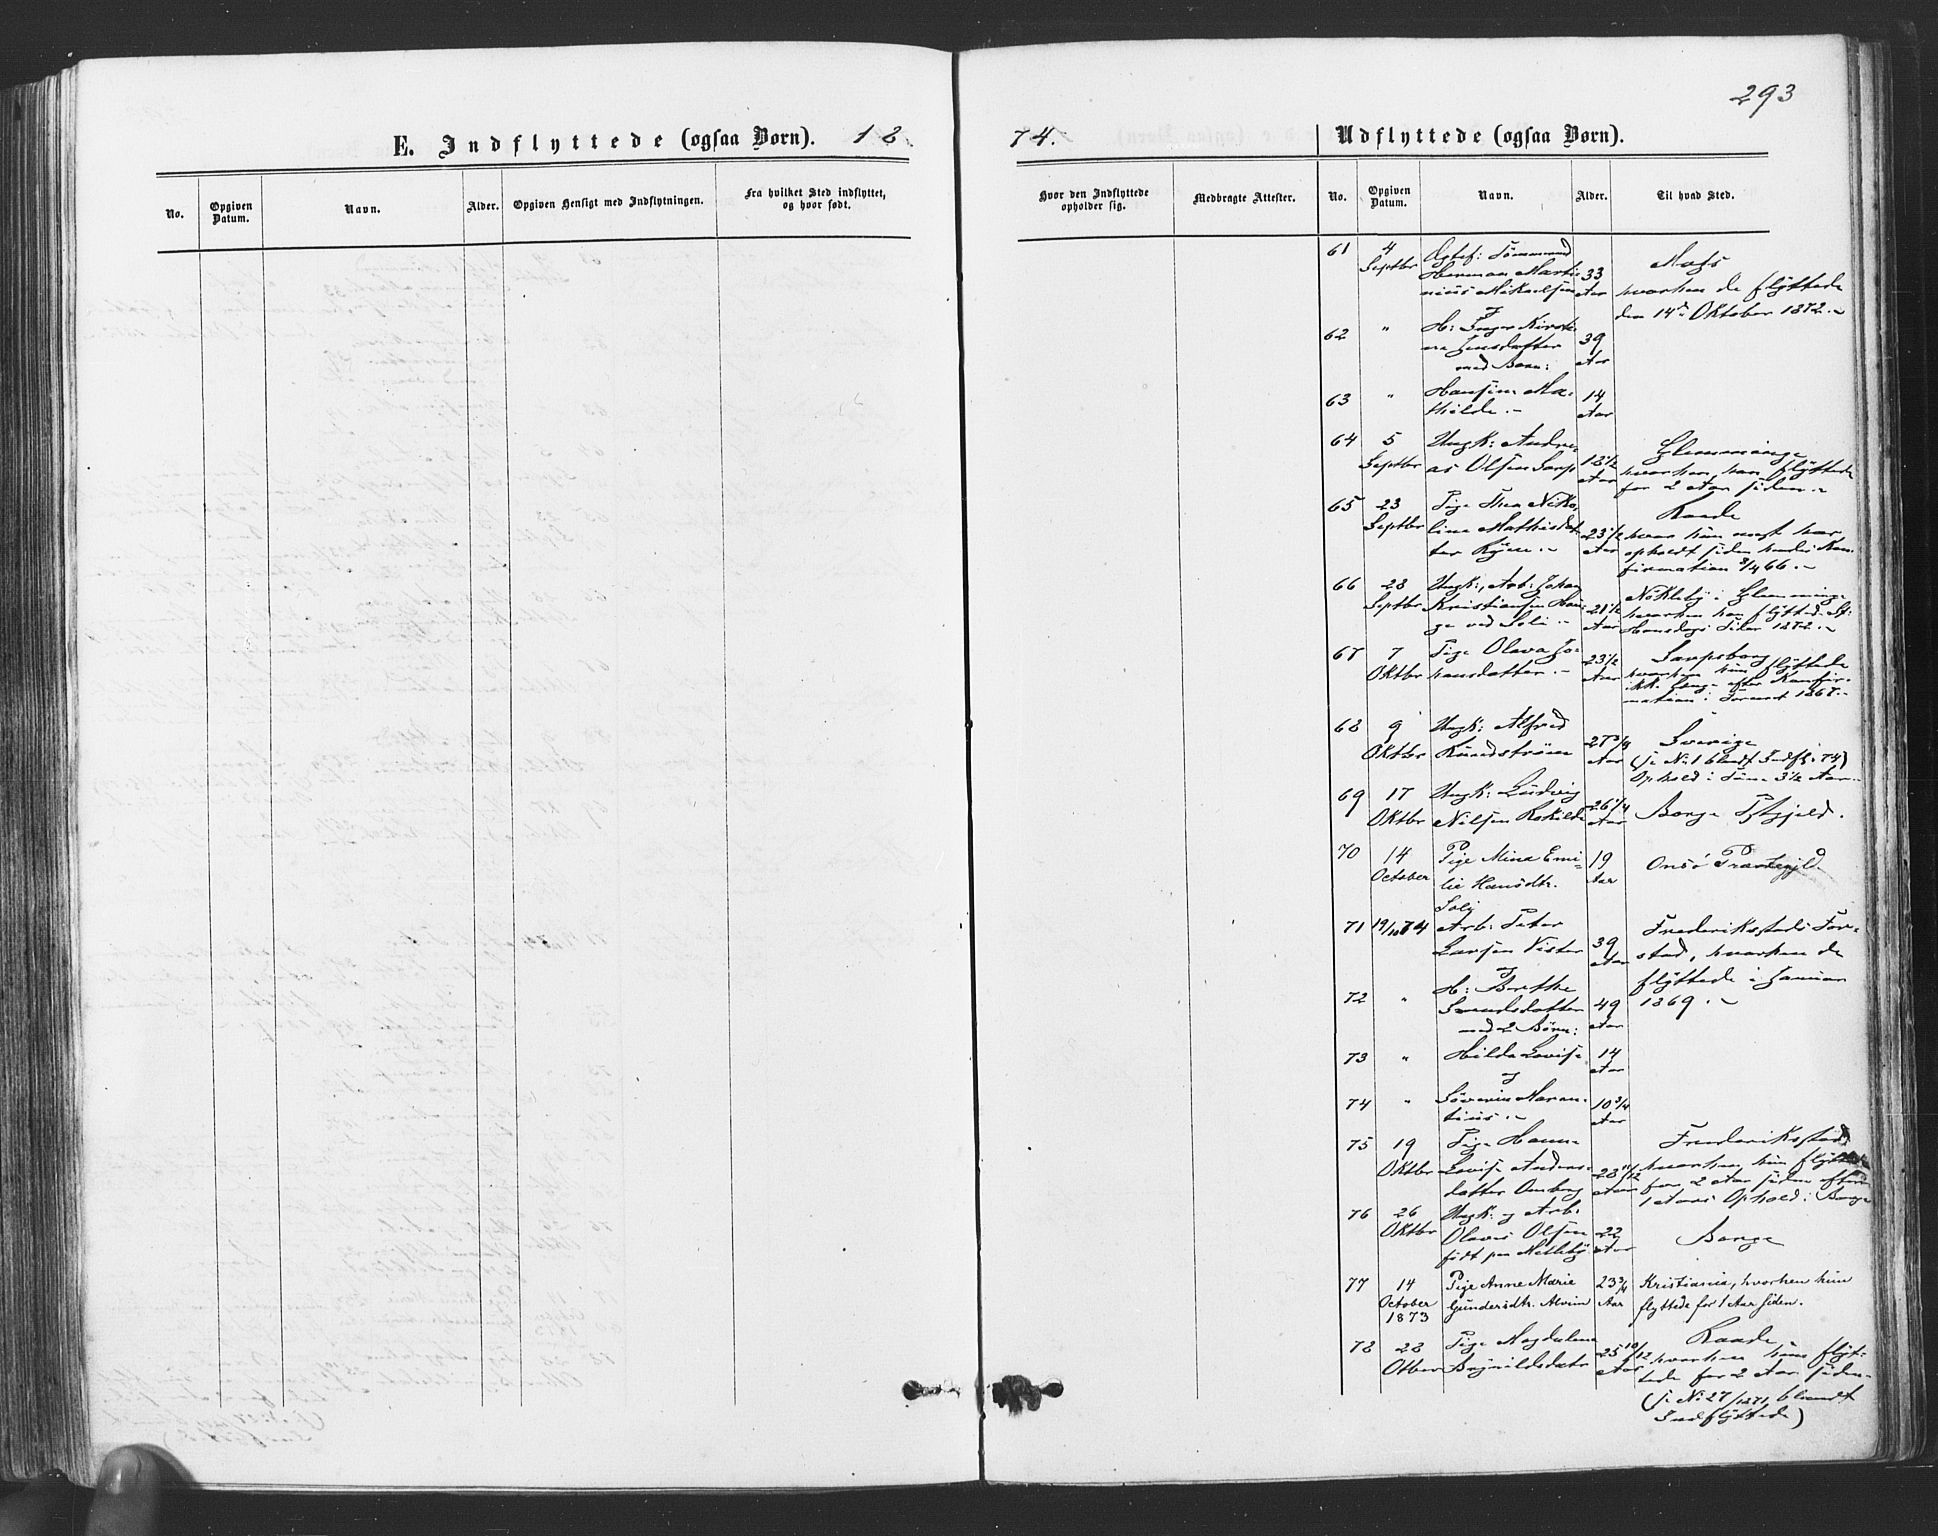 293
E. Indflyttede (ogsaa Børn). 18
74. Udflyttede (ogsaa Børn).
No. Opgiven Datum. Navn. Alder. Opgiven Hensigt med Indflytningen. Fra hvilket Sted indflyttet, og hvor født.
Hvor den Indflyttede opholder sig. Medbragte Attester. No. Opgiven Datum. Navn. Alder. Til hvad Sted.
61 4 Septbr
Herman Marti-
nius Mikaelsen 33 Aar Moss
hvorhen de flyttede
den 14de Oktober 1872.-
62 " H: Inger Kirsti-
ne Jensdatter 39 Aar
med Barn:
63 " Hansine Ma-
thilde.- 14 Aar
64 5 Septbr Ungk: Andre-
as Olsen Sarp 18 1/2 Aar Glemminge
hvorhen han flyttede
for 2 Aar siden.-
65 23 Septbr Pige Thea Niko-
line Mathisdat-
ter Ryen.- 23 1/2 Aar Raade
hvor hun mest har
opholdt siden hendes Kon-
firmation 8/4 66.-
66 28 Septbr Ungk:, Arb: Johan
Kristiansen Hau-
ge ved Soli.- 21 1/2 Aar Nøkleby i Glemminge
hvorhen han flyttede St:
Hansdags Tider 1872.-
67 7 Oktbr Pige Olava Jo-
hansdatter.- 23 1/2 Aar Sarpsborg
hvorhen hun flyttede
ikke længe efter Konfir-
mation i Torsnes 1867.-
68 9 Oktbr Ungk: Alfred
Rundstrøm 27 3/4 Aar Sverige
(se No: 1 blandt Indfl: 74)
Ophold i Tune 3 1/2 Aar.
69 17 Oktbr Ungk: Ludvig
Nilsen Roskilde 26 1/4 Aar Borge Pstgjeld.
70 14 October Pige Mina Emi-
lie Hansdtr.
Solij 19 Aar Onsø Præstegjld
71 19/10 74 Arb: Peter
Larsen Vister 39 Aar Frederiksstads For-
stad, hvorhen de
flyttede i Januar
1869.-
og
72 " H: Berthe
Svendsdatter 49 Aar
med 2 Børn:
73 " Hilda Lovise 14 Aar
og
74 " Søverin Maren-
tius.- 10 3/4 Aar
75 19 Oktbr Pige Hanne
Lovise Anders-
datter Omberg 28 11/12 Aar Frederiksstad
hvorhen hun flyttede
for 2 Aar siden efter
1 Aars Ophold i Borge
76 26 Oktbr Ungk: og Arb:
Olaves Olsen
født paa Nelleby 22 Aar Borge
77 14 October 1873 Pige Anne Marie
Gundersdtr. Alvim 23 3/4 Aar Kristiania, hvorhen hun
flyttede for 1 Aar siden.
78 28 Otber Pige Magdalena
Brynildsdatr 25 10/12 Aar Raade
hvorhen hun flyt-
tede for 2 Aar siden.
(se No: 27/1871, blandt
Indflyttede)